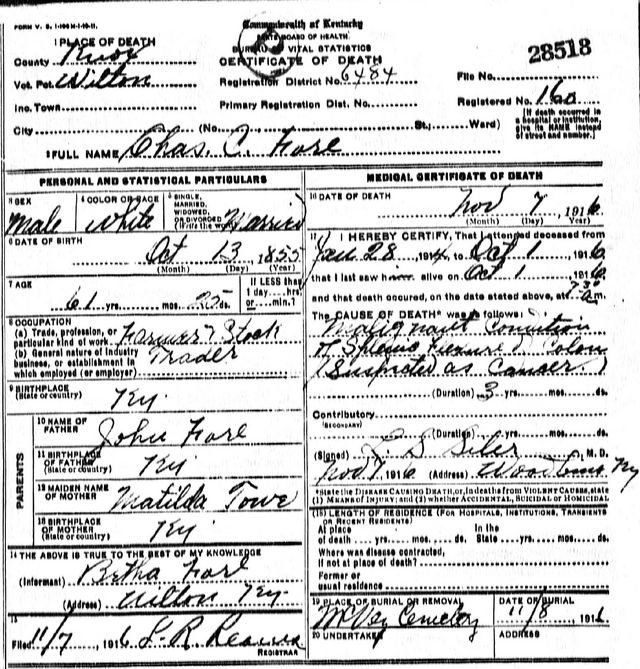 FORM V. S. 1-
Commonwealth of Kentucky
STATE BOARD OF HEALTH
BUREAU VITAL STATISTICS
CERTIFICATE OF DEATH
28518
1 PLACE OF DEATH
County Knox
Vot. Pct. Wilton
Registration District No. 6484
File No.
Inc. Town
Primary Registration Dist. No.
Registered No. 160
City (No. St.; Ward)
[If death occurred in
a hospital or institution,
give its NAME instead
of street and number.]
2 FULL NAME Chas. C. Fore
PERSONAL AND STATISTICAL PARTICULARS
3 SEX
Male
4 COLOR OR RACE
White
5 SINGLE,
MARRIED,
WIDOWED,
OR DIVORCED
(Write the word) Married
6 DATE OF BIRTH
Oct 13, 1855
(Month) (Day) (Year)
7 AGE
61 yrs. mos. 25 ds.
If LESS than
1 day....hrs.
or ....min.?
8 OCCUPATION
(a) Trade, profession, or
particular kind of work Farmer & Stock
(b) General nature of industry
business, or establishment in
which employed (or employer) Trader
9 BIRTHPLACE
(State or country) Ky.
PARENTS
10 NAME OF
FATHER John Fore
11 BIRTHPLACE
OF FATHER
(State or country) Ky
12 MAIDEN NAME
OF MOTHER Matilda Towe
13 BIRTHPLACE
OF MOTHER
(State or country) Ky.
14 THE ABOVE IS TRUE TO THE BEST OF MY KNOWLEDGE
(Informant) Bertha Fore
(Address) Wilton Ky.
15
Filed 11/7, 1916 L. R.
REGISTRAR
MEDICAL CERTIFICATE OF DEATH
16 DATE OF DEATH
Nov 7, 1916
(Month) (Day) (Year)
17 I HEREBY CERTIFY, That I attended deceased from
Jan 28 1914 to Oct 1, 1916
that I last saw him alive on Oct 1, 1916
and that death occured, on the date stated above, at 7 30 a.m.
The CAUSE OF DEATH* was as follows:
Malignant
of Splenic Flexure of Colon
(Suspected as Cancer.)
(Duration) 3 yrs. mos. ds.
Contributory
(SECONDARY)
(Duration) yrs. mos. ds.
(Signed) L. B. Siler, M. D.
Nov 7, 1916 (Address) Woodbine Ky
*State the DISEASE CAUSING DEATH, or, in deaths from VIOLENT CAUSES, state
(1) MEANS OF INJURY; and (2) whether ACCIDENTAL, SUICIDAL or HOMICIDAL
18 LENGTH OF RESIDENCE (FOR HOSPITALS, INSTITUTIONS, TRANSIENTS
OR RECENT RESIDENTS)
At place In the
of death yrs. mos. ds. State yrs. mos. ds.
Where was disease contracted,
if not at place of death?
Former or
usual residence
19 PLACE OF BURIAL OR REMOVAL
McVey Cemetery
DATE OF BURIAL
11/8, 1916
20 UNDERTAKER
ADDRESS